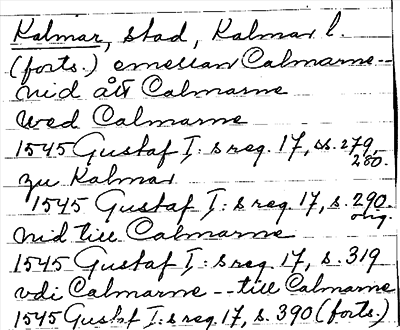 Kalmar, stad, Kalmar l.
(forts.) emellan Calmarne--
nid ått Calmarne
wed Calmarne
1545 Gustaf I:s reg. 17, ss. 279,
280.
zu Kalmar
1545 Gustaf I:s reg. 17, s. 290
orig.
nid till Calmarne
1545 Gustaf I:s reg. 17, s. 319
vdi Calmarne -- till Calmarne
1545 Gustaf I:s reg. 17, s. 390 (forts.)